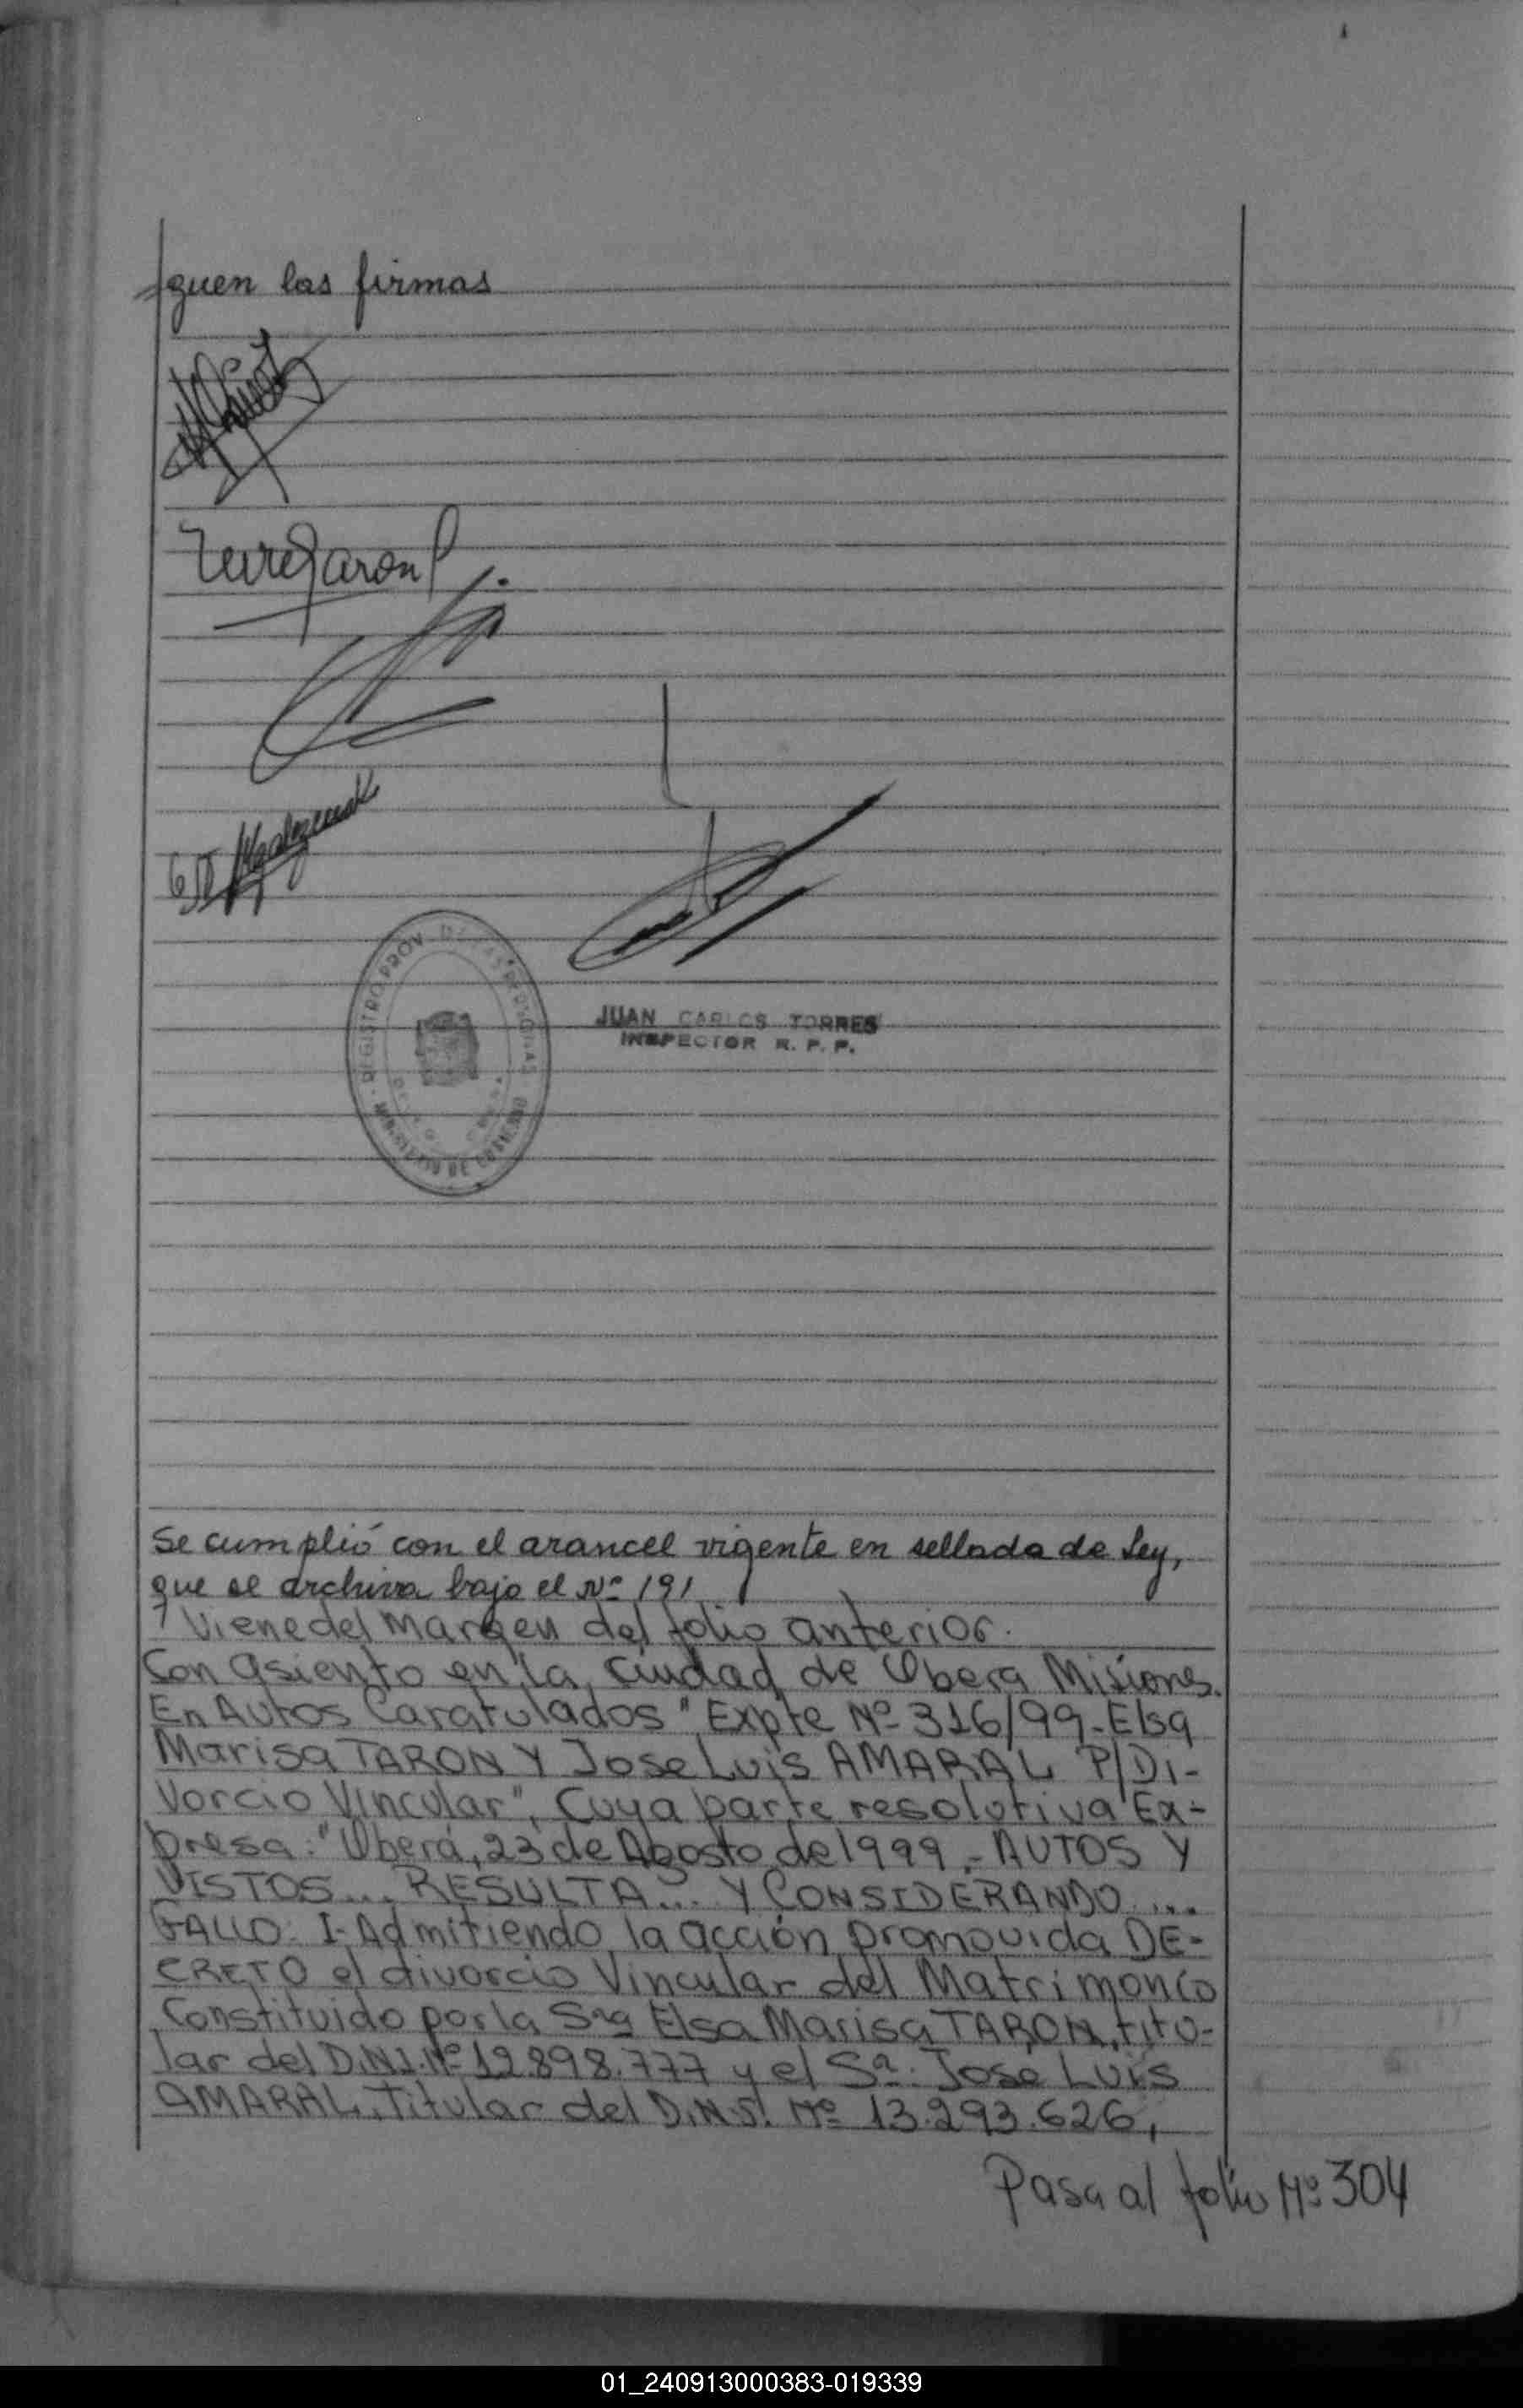 guen las firmas
REGISTRO PROV. DE LAS PERSONAS
MINISTERIO DE GOBIERNO
JUAN CARLOS TORRES
INSPECTOR R. P. P.
Se cumplió con el arancel vigente en sellada de Ley,
que se archiva bajo el Nº 191
Viene del Margen del folio anterior.
Con asiento en la Ciudad de Obera Misiones.
En Autos Caratulados "Expte Nº 316/99-Elsa
Marisa TARON Y Jose Luis AMARAL P/Di-
Vorcio Vincular", Cuya parte resolutiva Ex-
presa: "Oberá, 23 de Agosto de 1999.- AUTOS Y
VISTOS... RESULTA... Y CONSIDERANDO...
FALLO: I-Admitiendo la acción promovida DE-
CRETO el divorcio Vincular del Matrimonio
Constituido por la Sra Elsa Marisa TARON, titu-
lar del D.N.I. Nº 12.898.777 y el Sr. Jose Luis
AMARAL, Titular del D.N.I. Nº 13.293.626,
Pasa al folio Nº 304
01_240913000383-019339